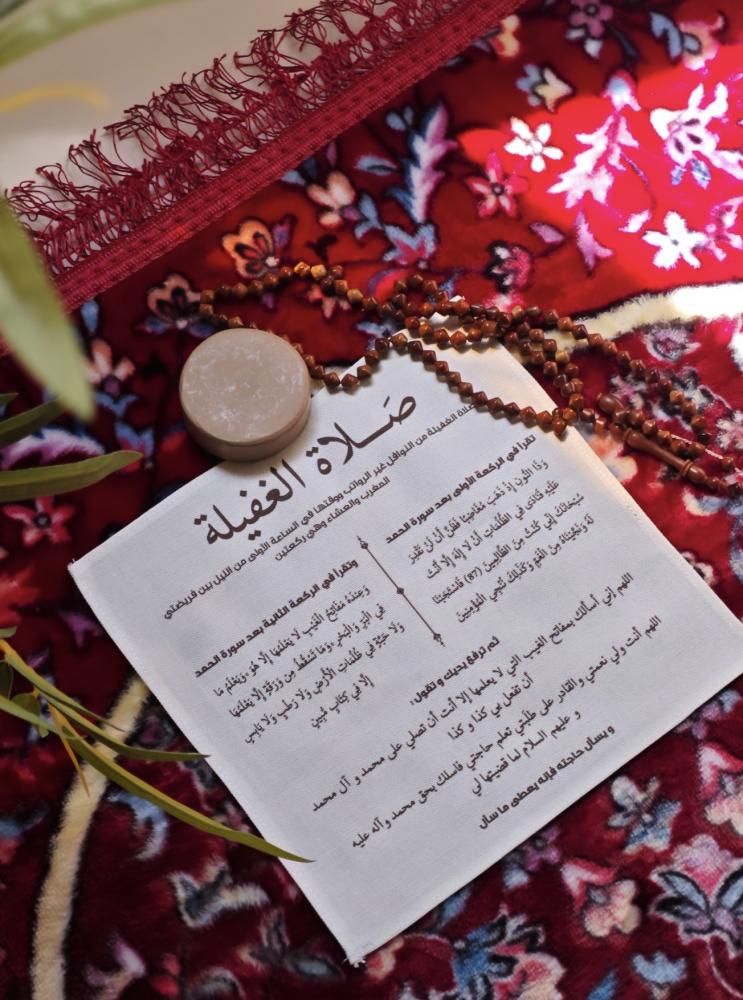 صَلاة الغفيلة
صلاة الغفيلة من النوافل غير الرواتب ووقتها في الساعة الأولى من الليل بين فريضتي
المغرب والعشاء وهي ركعتين
تقرأ في الركعة الأولى بعد سورة الحمد
وَذَا النُّونِ إِذ ذَّهَبَ مُغَاضِبًا فَظَنَّ أَن لَّن نَّقْدِرَ
عَلَيْهِ فَنَادَى فِي الظُّلُمَاتِ أَن لَّا إِلَهَ إِلَّا أَنتَ
سُبْحَانَكَ إِنِّي كُنتُ مِنَ الظَّالِمِينَ (87) فَاسْتَجَبْنَا
لَهُ وَنَجَّيْنَاهُ مِنَ الْغَمِّ وَكَذَلِكَ نُنجِي الْمُؤْمِنِينَ
وتقرأ في الركعة الثانية بعد سورة الحمد
وَعِندَهُ مَفَاتِحُ الْغَيْبِ لَا يَعْلَمُهَا إِلَّا هُوَ وَيَعْلَمُ مَا
فِي الْبَرِّ وَالْبَحْرِ وَمَا تَسْقُطُ مِن وَرَقَةٍ إِلَّا يَعْلَمُهَا
وَلَا حَبَّةٍ فِي ظُلُمَاتِ الْأَرْضِ وَلَا رَطْبٍ وَلَا يَابِسٍ
إِلَّا فِي كِتَابٍ مُّبِينٍ
ثم ترفع يديك و تقول :
اللهم إني أسألك بمفاتح الغيب التي لا يعلمها إلا أنت أن تصلي على محمد و آل محمد
أن تفعل بي كذا و كذا
اللهم أنت ولي نعمتي والقادر على طلبتي تعلم حاجتي فاسلك بحق محمد و آله عليه
و عليهم السلام لما قضيتها لي
و يسأل حاجته فإنه يعطى ما سأل